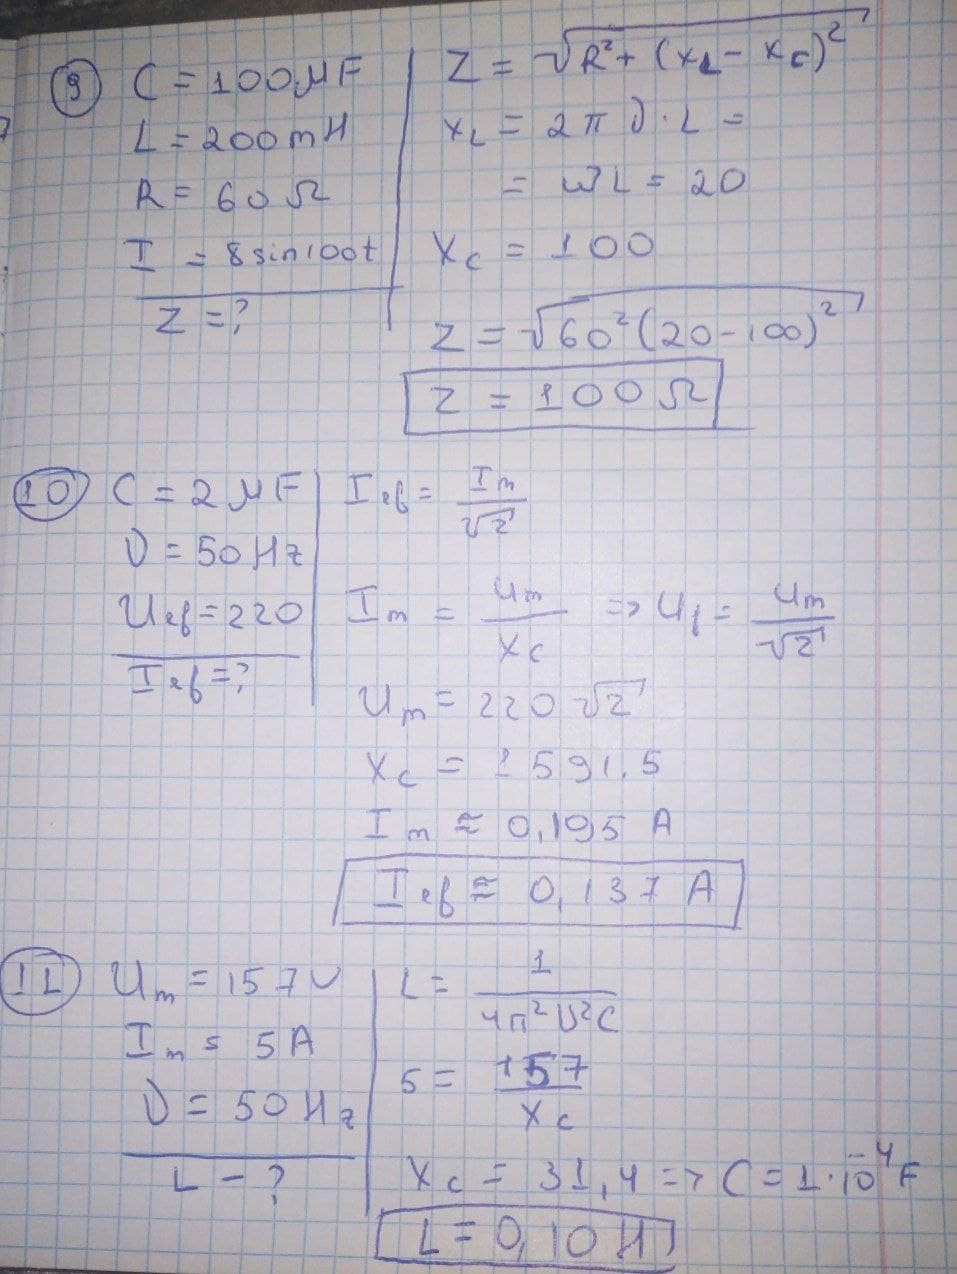 9 C = 100 μF
L = 200 mH
R = 60 Ω
I = 8 sin 100t
Z = ?
Z = √R² + (X_L - X_C)²
X_L = 2πν · L =
= ωL = 20
X_C = 100
Z = √60² (20 - 100)²
Z = 100 Ω
10 C = 2 μF
ν = 50 Hz
U_ef = 220
I_ef = ?
I_ef = I_m / √2
I_m = U_m / X_C => U_f = U_m / √2
U_m = 220 √2
X_C = 1591.5
I_m ≈ 0,195 A
I_ef ≈ 0,137 A
11 U_m = 157 V
I_m = 5 A
ν = 50 Hz
L - ?
L = 1 / 4π²ν²C
5 = 157 / X_C
X_C = 31,4 => C = 1 · 10⁻⁴ F
L = 0,10 H